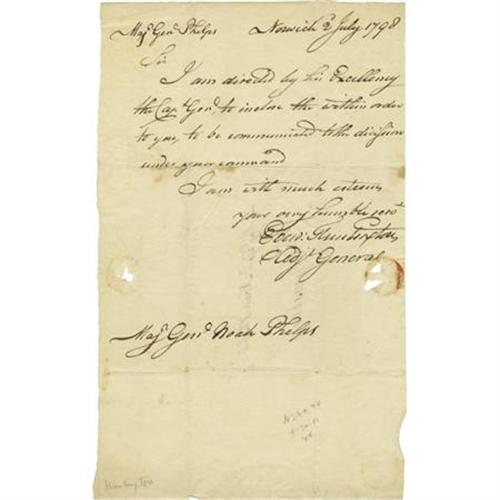 Maj. Genl. Phelps Norwich 2 July 1798
Sir
I am directed by his Excellency
the Capt. Genl. to inclose the within order
to you, to be communicated to the division
under your command
I am with much esteem
your very humble servt.
Ebenr. Huntington
Adjt. General
Maj. Genl. Noah Phelps
Huntington